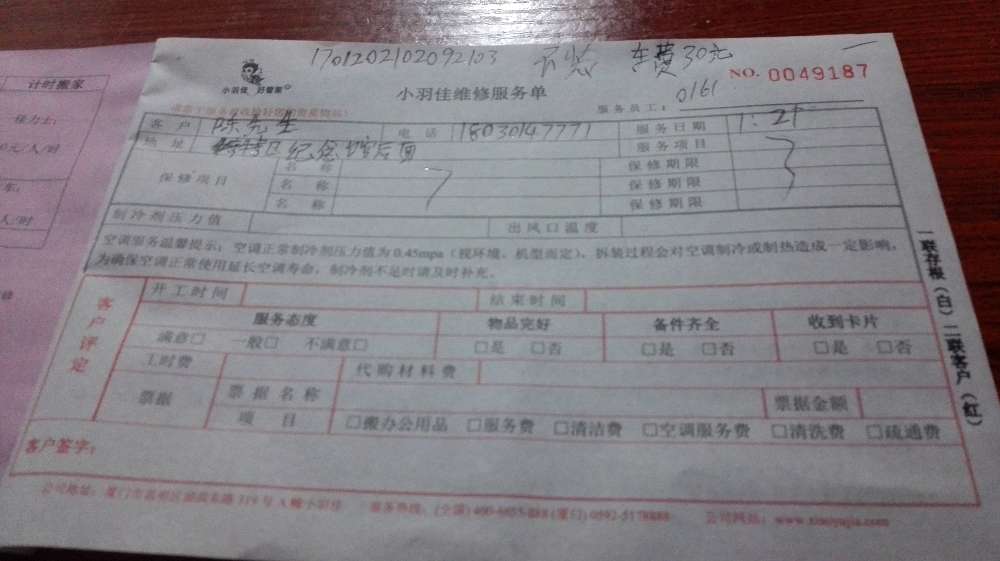 1701202102092103 车费30元
小羽佳 好管家
小羽佳维修服务单
NO. 0049187
服务员工: 0161
客户 陈先生 电话 18030147771 服务日期 1.21
地址 纪念馆后面 服务项目
保修项目 名称 保修期限
名称 保修期限
名称 保修期限
制冷剂压力值 出风口温度
空调服务温馨提示:空调正常制冷剂压力值为0.45mpa(视环境、机型而定)、拆装过程会对空调制冷或制热造成一定影响,
为确保空调正常使用延长空调寿命,制冷剂不足时请及时补充。
客户评定
开工时间 结束时间
服务态度 物品完好 备件齐全 收到卡片
满意□ 一般□ 不满意□ □是 □否 □是 □否 □是 □否
工时费 代购材料费
票据 票据名称 票据金额
项目 □搬办公用品 □服务费 □清洁费 □空调服务费 □清洗费 □疏通费
客户签字:
公司地址: 319号A幢小羽佳 服务热线:(全国) (厦门) 0592-5178888 公司网站:www.xiaoyujia.com
一联存根(白)二联客户(红)
计时搬家
保力士:
元/人/时
车:
人/时